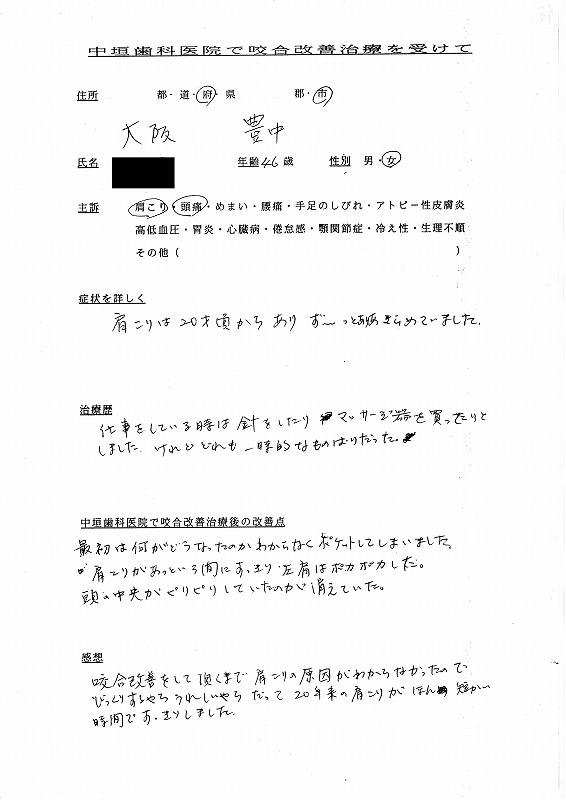 中垣歯科医院で咬合改善治療を受けて
住所 都・道・府・県 郡・市
大阪 豊中
氏名 年齢46歳 性別 男・女
主訴 肩こり・頭痛・めまい・腰痛・手足のしびれ・アトピー性皮膚炎
高低血圧・胃炎・心臓病・倦怠感・顎関節症・冷え性・生理不順
その他（ ）
症状を詳しく
肩こりは20才頃からあり ず～っとあきらめていました。
治療歴
仕事をしている時は針をしたり マッサージ器を買ったりと
しました。けれどどれも一時的なものばりだった。
中垣歯科医院で咬合改善治療後の改善点
最初は何がどうなったのかわからなくポケットしてしまいました。
肩こりがあっという間にすっきり 左肩はポカポカしだ。
頭の中央がピリピリしていたのが消えていた。
感想
咬合改善をして頂くまで肩こりの原因がわからなかったので
びっくりするやらうれしいやら だって20年来の肩こりがほん 短かい
時間ですっきりしました。